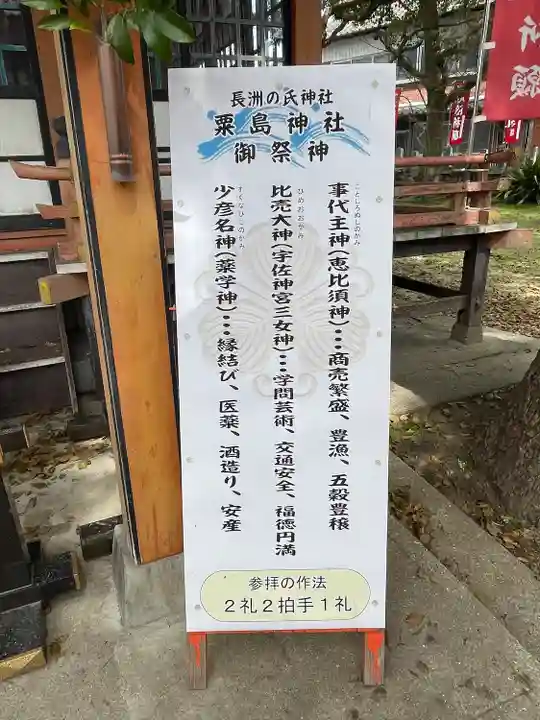 長洲の氏神社
粟島神社
御祭神
事代主神(恵比須神)…商売繁盛、豊漁、五穀豊穣
ことしろぬしのかみ
比売大神(宇佐神宮三女神)…学問芸術、交通安全、福徳円満
ひめおおかみ
少彦名神(薬学神)…縁結び、医薬、酒造り、安産
すくなひこのかみ
参拝の作法
2礼2拍手1礼
祈願